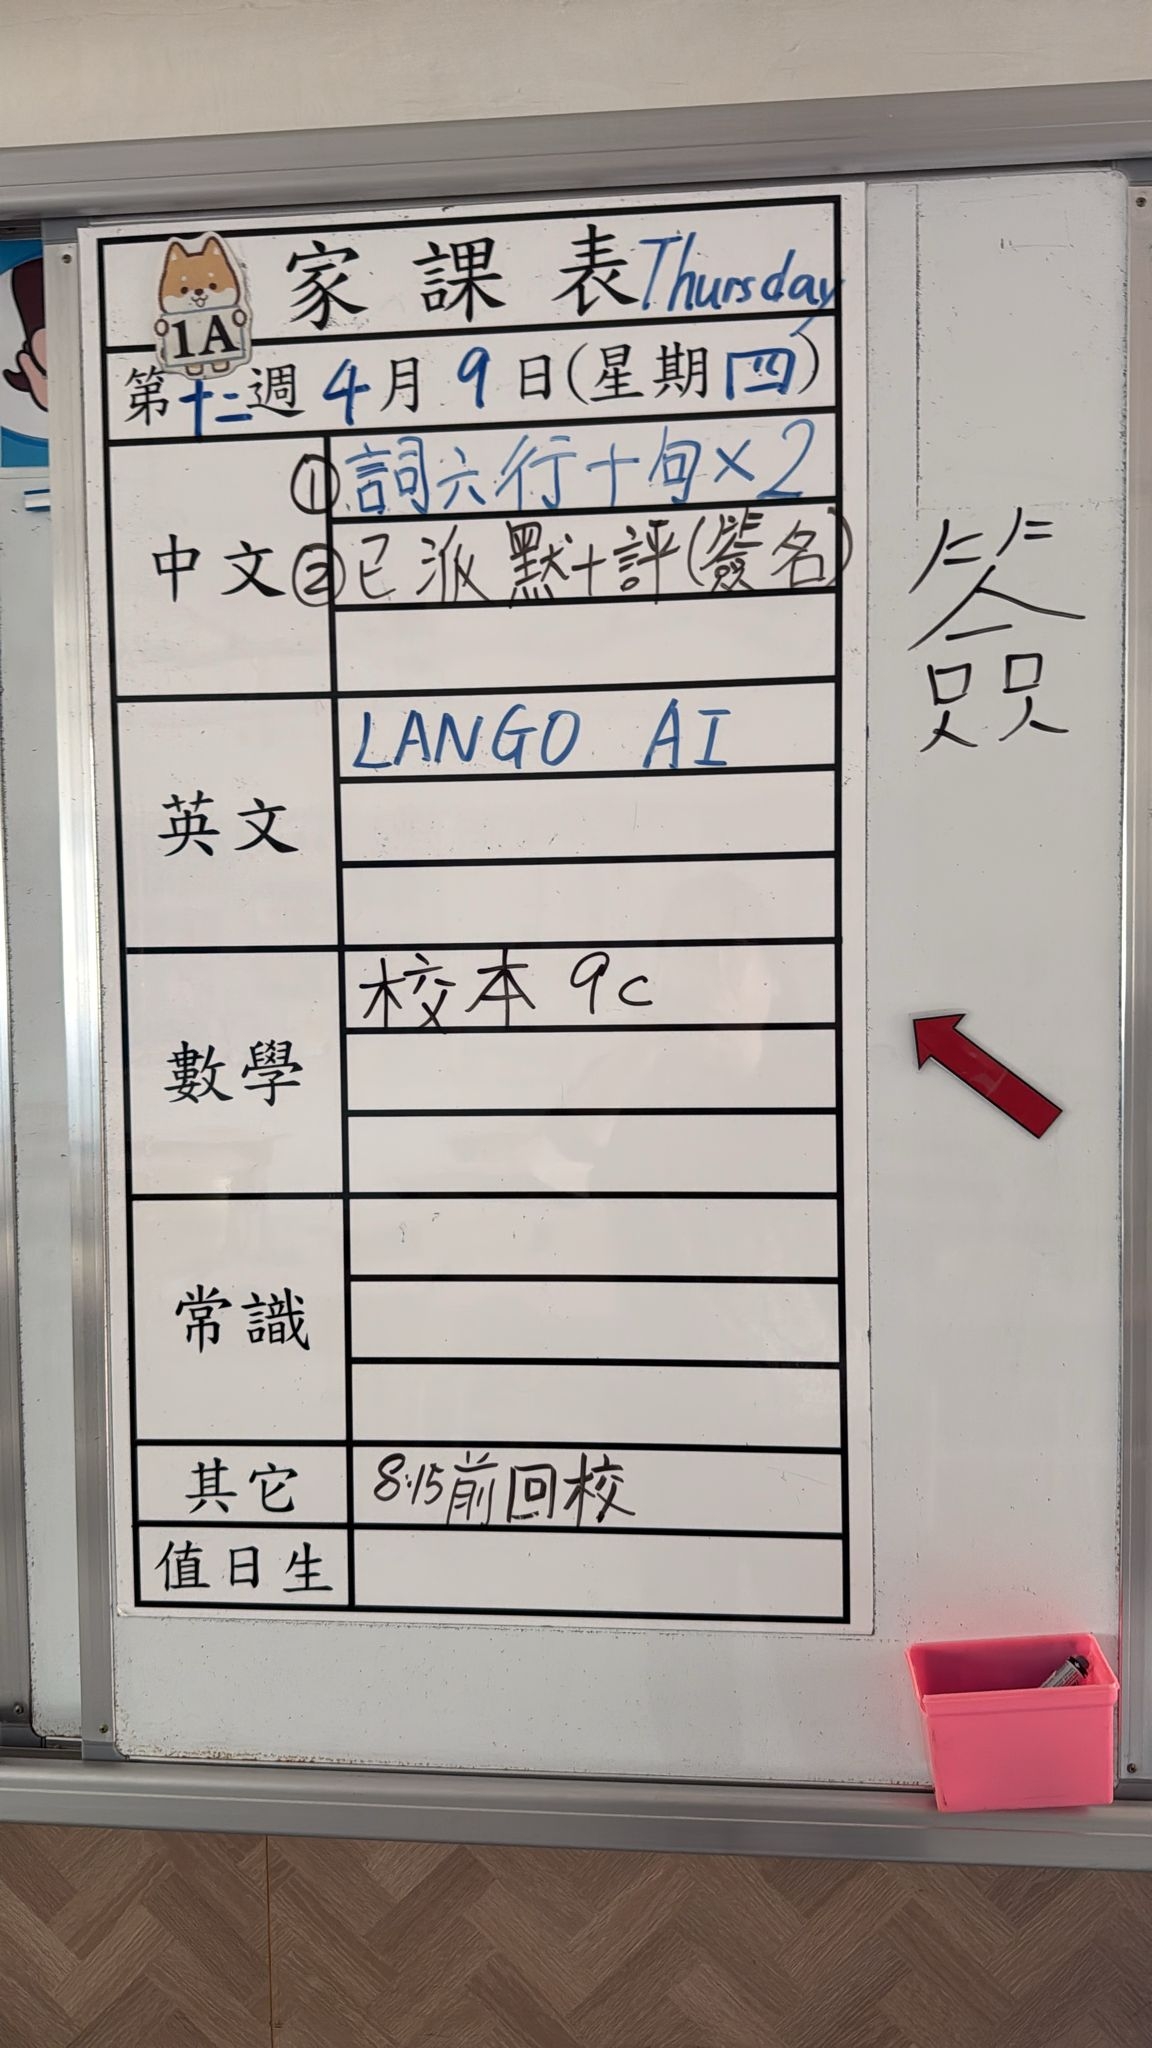 家課表 Thursday
1A
第十二週 4月9日(星期四)
中文
① 詞六行十句×2
② 已派默+評(簽名)
簽
英文
LANGO AI
數學
校本 9c
常識
其它
8:15前回校
值日生